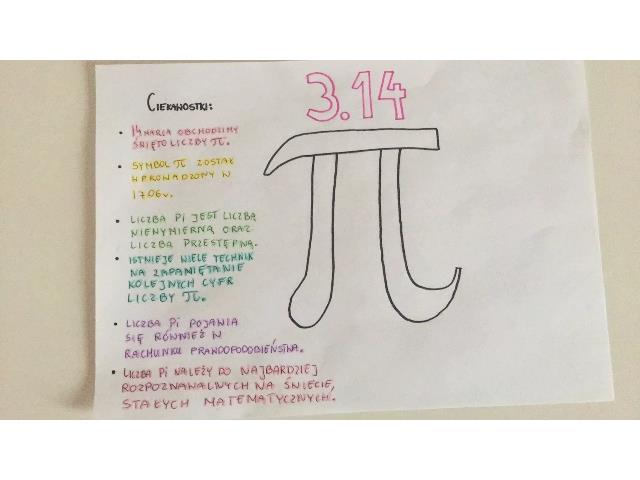 3.14
CIEKAWOSTKI:
• 14 MARCA OBCHODZIMY
ŚWIĘTO LICZBY π.
• SYMBOL π ZOSTAŁ
WPROWADZONY W
1706r.
• LICZBA PI JEST LICZBĄ
NIEWYMIERNĄ ORAZ
LICZBĄ PRZESTĘPNĄ.
• ISTNIEJE WIELE TECHNIK
NA ZAPAMIĘTANIE
KOLEJNYCH CYFR
LICZBY π.
• LICZBA PI POJAWIA
SIĘ RÓWNIEŻ W
RACHUNKU PRAWDOPODOBIEŃSTWA.
• LICZBA PI NALEŻY DO NAJBARDZIEJ
ROZPOZNAWALNYCH NA ŚWIECIE,
STAŁYCH MATEMATYCZNYCH.
π